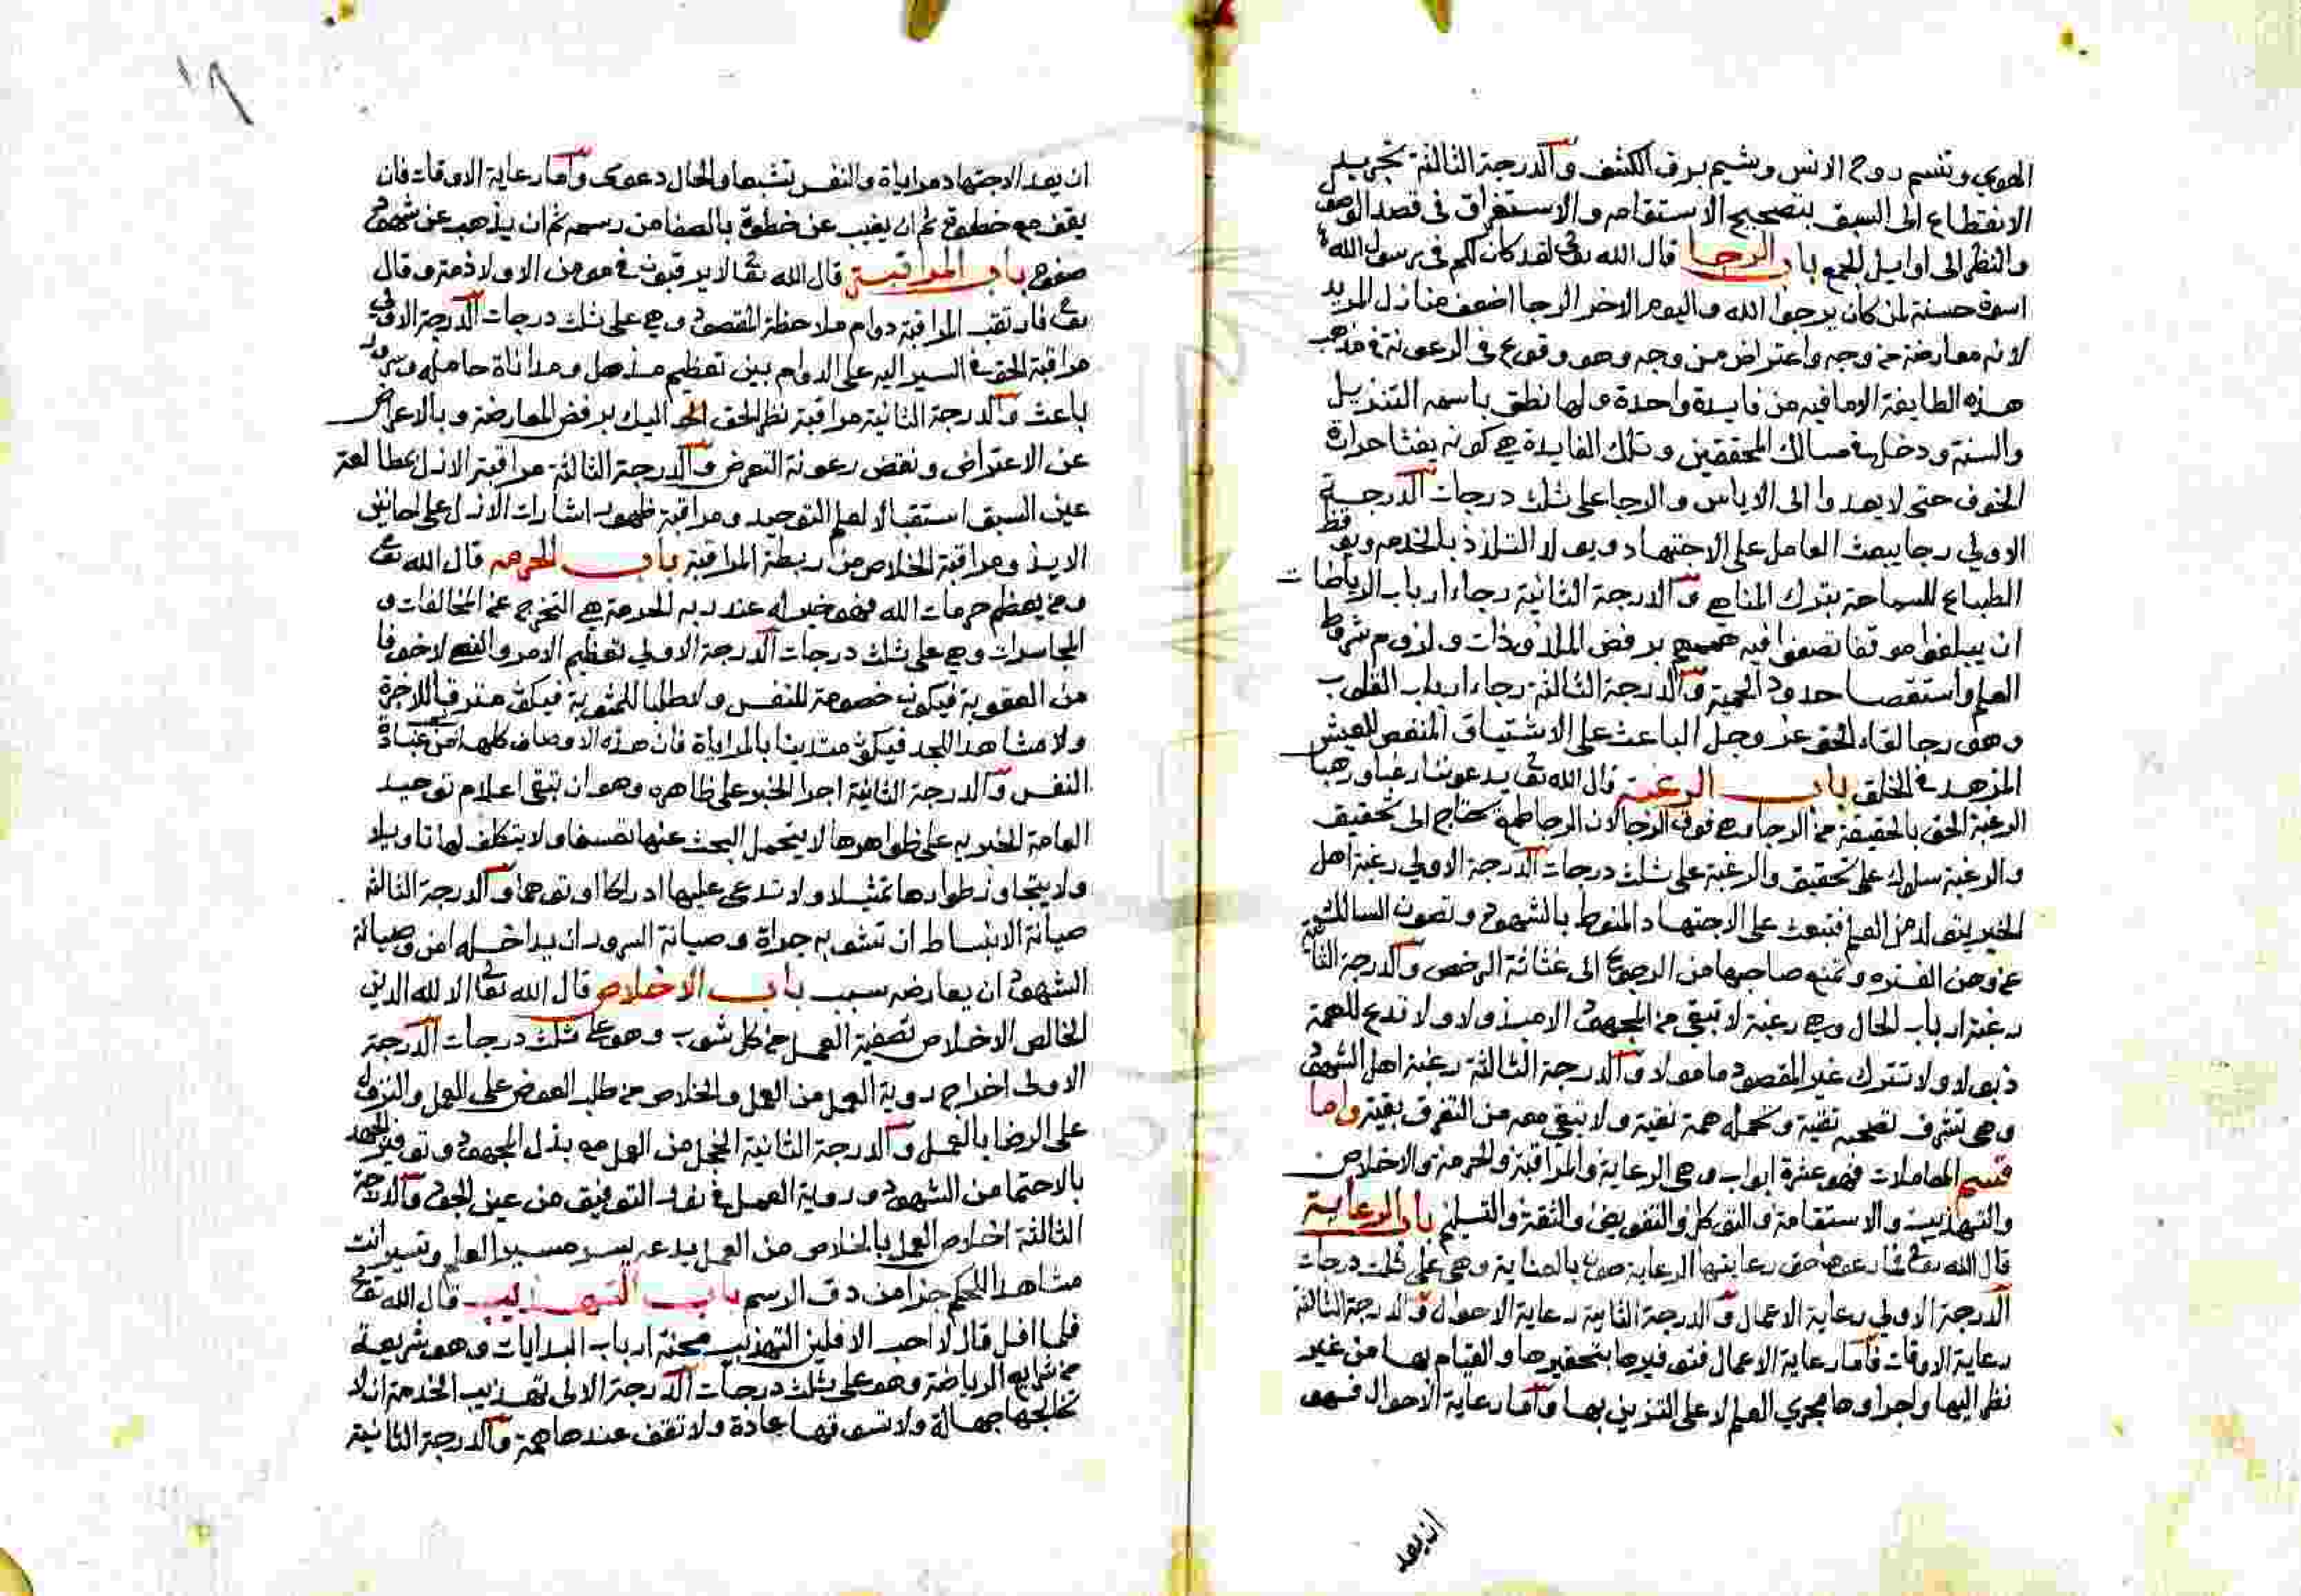 الهوي وتنسم روح الانس وبشيم برق الكشف والدرجة الثالثة تجريد
الانقطاع الى السبق بتصحيح الاستقامه والاستغراق في قصد الوصول
والنظر الى اوايل الجمع باب الرجا قال الله تعالى لقد كان لكم في رسول الله
اسوة حسنة لمن كان يرجوا الله واليوم الاخر الرجا اضعف منازل المريد
لانه معارضة من وجه واعتراض من وجه وهو وقوع في الرعونة في مذهب
هذه الطايفة الا ما فيه من فايدة واحدة ولها نطق باسمه التنزيل
والسنة ودخل في مسالك المحققين وتلك الفايدة هي كونه يفثا حرارة
الخوف حتى لا يعدوا الى الاياس والرجا على ثلث درجات الدرجة
الاولي رجا يبعث العامل على الاجتهاد ويولد التلذذ بالخدمه ويوقظ
الطباع للسماحة بترك المناهي والدرجة الثانية رجاء ارباب الرياضات
ان يبلغوا موقفا تصفوا فيه هممهم برفض الملذوذات ولزوم شروط
العلم واستقصا حدود الحمية والدرجة الثالثة رجاء ارباب القلوب
وهو رجا لقاء الحق عز وجل الباعث على الاشتياق المنغص للعيش
المزهد في الخلق باب الرغبة قال الله تعالى يدعوننا رغبا ورهبا
الرغبة الحق بالحقيقة من الرجا وهي فوق الرجا لان الرجا طمع يحتاج الى تحقيق
والرغبة سلوك على تحقيق والرغبة على ثلث درجات الدرجة الاولي رغبة اهل
الخبر يتولد من العلم فتبعث على الاجتهاد المنوط بالشهود وتصون السالك
عن وهن الفتره وتمنع صاحبها من الرجوع الى غثاثة الرخص والدرجة الثانية
رغبة ارباب الحال وهي رغبة لا تبقي من المجهود الا مبذولا ولا تدع للهمة
ذبولا ولا تترك غير المقصود مامولا والدرجة الثالثة رغبة اهل الشهود
وهي تشرف تصحبه تقية وتحمله همة نقية ولا تبقي معه من التفرق بقية واما
قسم المعاملات فهو عشرة ابواب وهي الرعاية والمراقبة والحرمة والاخلاص
والتهذيب والاستقامة والتوكل والتفويض والثقة والتسليم باب الرعاية
قال الله تعالى فما رعوها حق رعايتها الرعاية صون بالعناية وهي على ثلث درجات
الدرجة الاولي رعاية الاعمال والدرجة الثانية رعاية الاحوال والدرجة الثالثة
رعاية الاوقات فاما رعاية الاعمال فتوفيرها بتحقيرها والقيام بها من غير
نظر اليها واجراوها مجري العلم لا على التزين بها واما رعاية الاحوال فهو
ان يعد
١٨
ان يعد الاجتهاد مراياة والنفس تشبعا والحال دعوى واما رعاية الاوقات فان
يقف مع خطوة ثم ان يغيب عن خطوة بالصفا من رسمه ثم ان يذهب عن شهود
صفوه باب المراقبة قال الله تعالى لا يرقبون في مومن الا ولا ذمة وقال
تعالى فارتقب المراقبة دوام ملاحظة المقصود وهي على ثلث درجات الدرجة الاولي
مراقبة الحق في السير اليه على الدوام بين تعظيم مذهل ومداناة حاملة وسرور
باعث والدرجة الثانية مراقبة نظر الحق اليك برفض المعارضة وبالاعراض
عن الاعتراض ونقض رعونة التعرض والدرجة الثالثة مراقبة الازل بمطالعة
عين السبق استقبالا لعلم التوحيد ومراقبة ظهور اشارات الازل على احايين
الابد ومراقبة الخلاص من ربطة المراقبة باب الحرمه قال الله تعالى
ومن يعظم حرمات الله فهو خير له عند ربه الحرمة هي التحرج عن المخالفات و
المجاسرات وهي على ثلث درجات الدرجة الاولي تعظيم الامر والنهي لا خوفا
من العقوبة فيكون خصومة للنفس ولا طلبا للمثوبة فيكون مسترقا للاجرة
ولا مشاهدا لاحد فيكون متدينا بالمراياة فان هذه الاوصاف كلها من عبادة
النفس والدرجة الثانية اجرا الخبر على ظاهره وهو ان تبقى اعلام توحيد
العامة الخبرية على ظواهرها لا يتحمل البحث عنها تعسفا ولا يتكلف لها تاويلا
ولا يتجاوز ظواهرها تمثيلا ولا تدعى عليها ادراكا او توهما والدرجة الثالثة
صيانة الانبساط ان تشوبه جراة وصيانة السرور ان يداخله امن وصيانة
الشهود ان يعارضه سبب باب الاخلاص قال الله تعالى الا لله الدين
الخالص الاخلاص تصفية العمل من كل شوب وهو على ثلث درجات الدرجة
الاولى اخراج روية العمل من العمل والخلاص من طلب العوض على العمل والنزول
على الرضا بالعمل والدرجة الثانية الخجل من العمل مع بذل المجهود وتوفير الجهد
بالاحتما من الشهود وروية العمل في نور التوفيق من عين الجود والدرجة
الثالثة اخلاص العمل بالخلاص من العمل يدعه يسير مسير العلم وتسير انت
مشاهدا للحكم حرا من رق الرسم باب التهذيب قال الله تعالى
فلما افل قال لا احب الافلين التهذيب محنة ارباب البدايات وهو شريعة
من شرايع الرياضة وهو على ثلث درجات الدرجة الاولى تهذيب الخدمة ان لا
تخالجها جهالة ولا تسوقها عادة ولا تقف عندها همة والدرجة الثانية